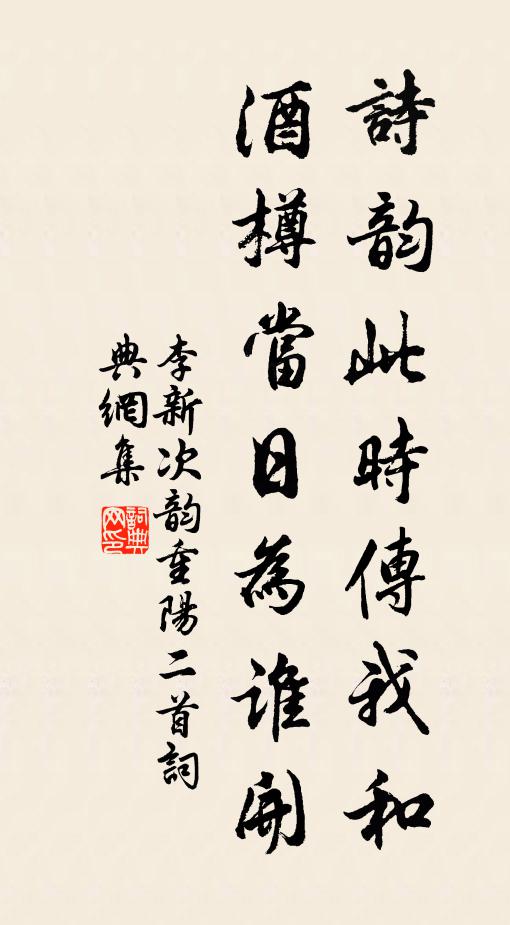 詩韵此時傳我和
酒樽當日為誰開
李新次韵重陽二首詞
典網集
詞典
网印